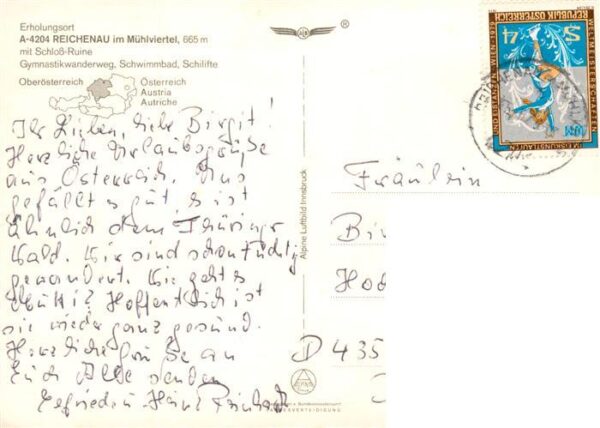 Erholungsort
A-4204 REICHENAU im Mühlviertel, 665 m
mit Schloß-Ruine
Gymnastikwanderweg, Schwimmbad, Schilifte
Oberösterreich
Österreich
Austria
Autriche
Ihr Lieben, liebe Birgit!
Herzliche Urlaubsgrüße
aus Österreich. Uns
gefällt es gut es ist
ähnlich dem Thüringer
Wald. Wir sind schon tüchtig
gewandert. Wie geht es
Mutti? Hoffentlich ist
sie wieder ganz gesund.
Herzliche Grüße an
Euch Alle senden
Heinz
Alpine Luftbild Innsbruck
®
REPUBLIK ÖSTERREICH
S 4
WELTMEISTERSCHAFTEN
UND EISTANZ WIEN 1979
EISKUNSTLAUFEN
Fräulein
Bi
Ho
D 435